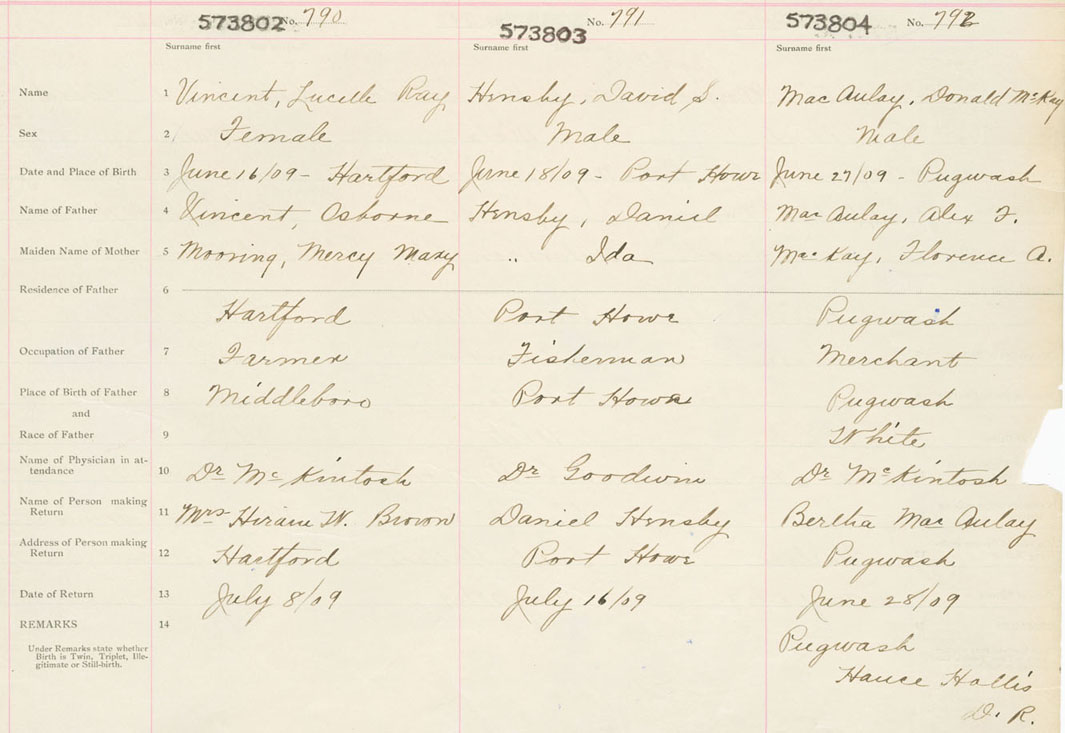 573802 No. 790 573803 No. 791 573804 No. 792
Surname first Surname first Surname first
Name 1 Vincent, Lucille Ray Hensby, David S. MacAulay, Donald McKay
Sex 2 Female Male Male
Date and Place of Birth 3 June 16/09 - Hartford June 18/09 - Port Howe June 27/09 - Pugwash
Name of Father 4 Vincent, Osborne Hensby, Daniel MacAulay, Alex F.
Maiden Name of Mother 5 Mooring, Mercy Mary " Ida MacKay, Florence A.
Residence of Father 6
Hartford Port Howe Pugwash
Occupation of Father 7 Farmer Fisherman Merchant
Place of Birth of Father 8 Middleboro Port Howe Pugwash
and
Race of Father 9 White
Name of Physician in at-
tendance 10 Dr McKintosh Dr Goodwin Dr McKintosh
Name of Person making
Return 11 Mrs Hiram W. Brown Daniel Hensby Bertha MacAulay
Address of Person making
Return 12 Hartford Port Howe Pugwash
Date of Return 13 July 8/09 July 16/09 June 28/09
REMARKS 14
Under Remarks state whether
Birth is Twin, Triplet, Ille-
gitimate or Still-birth.
Pugwash
Hance Hollis
D. R.